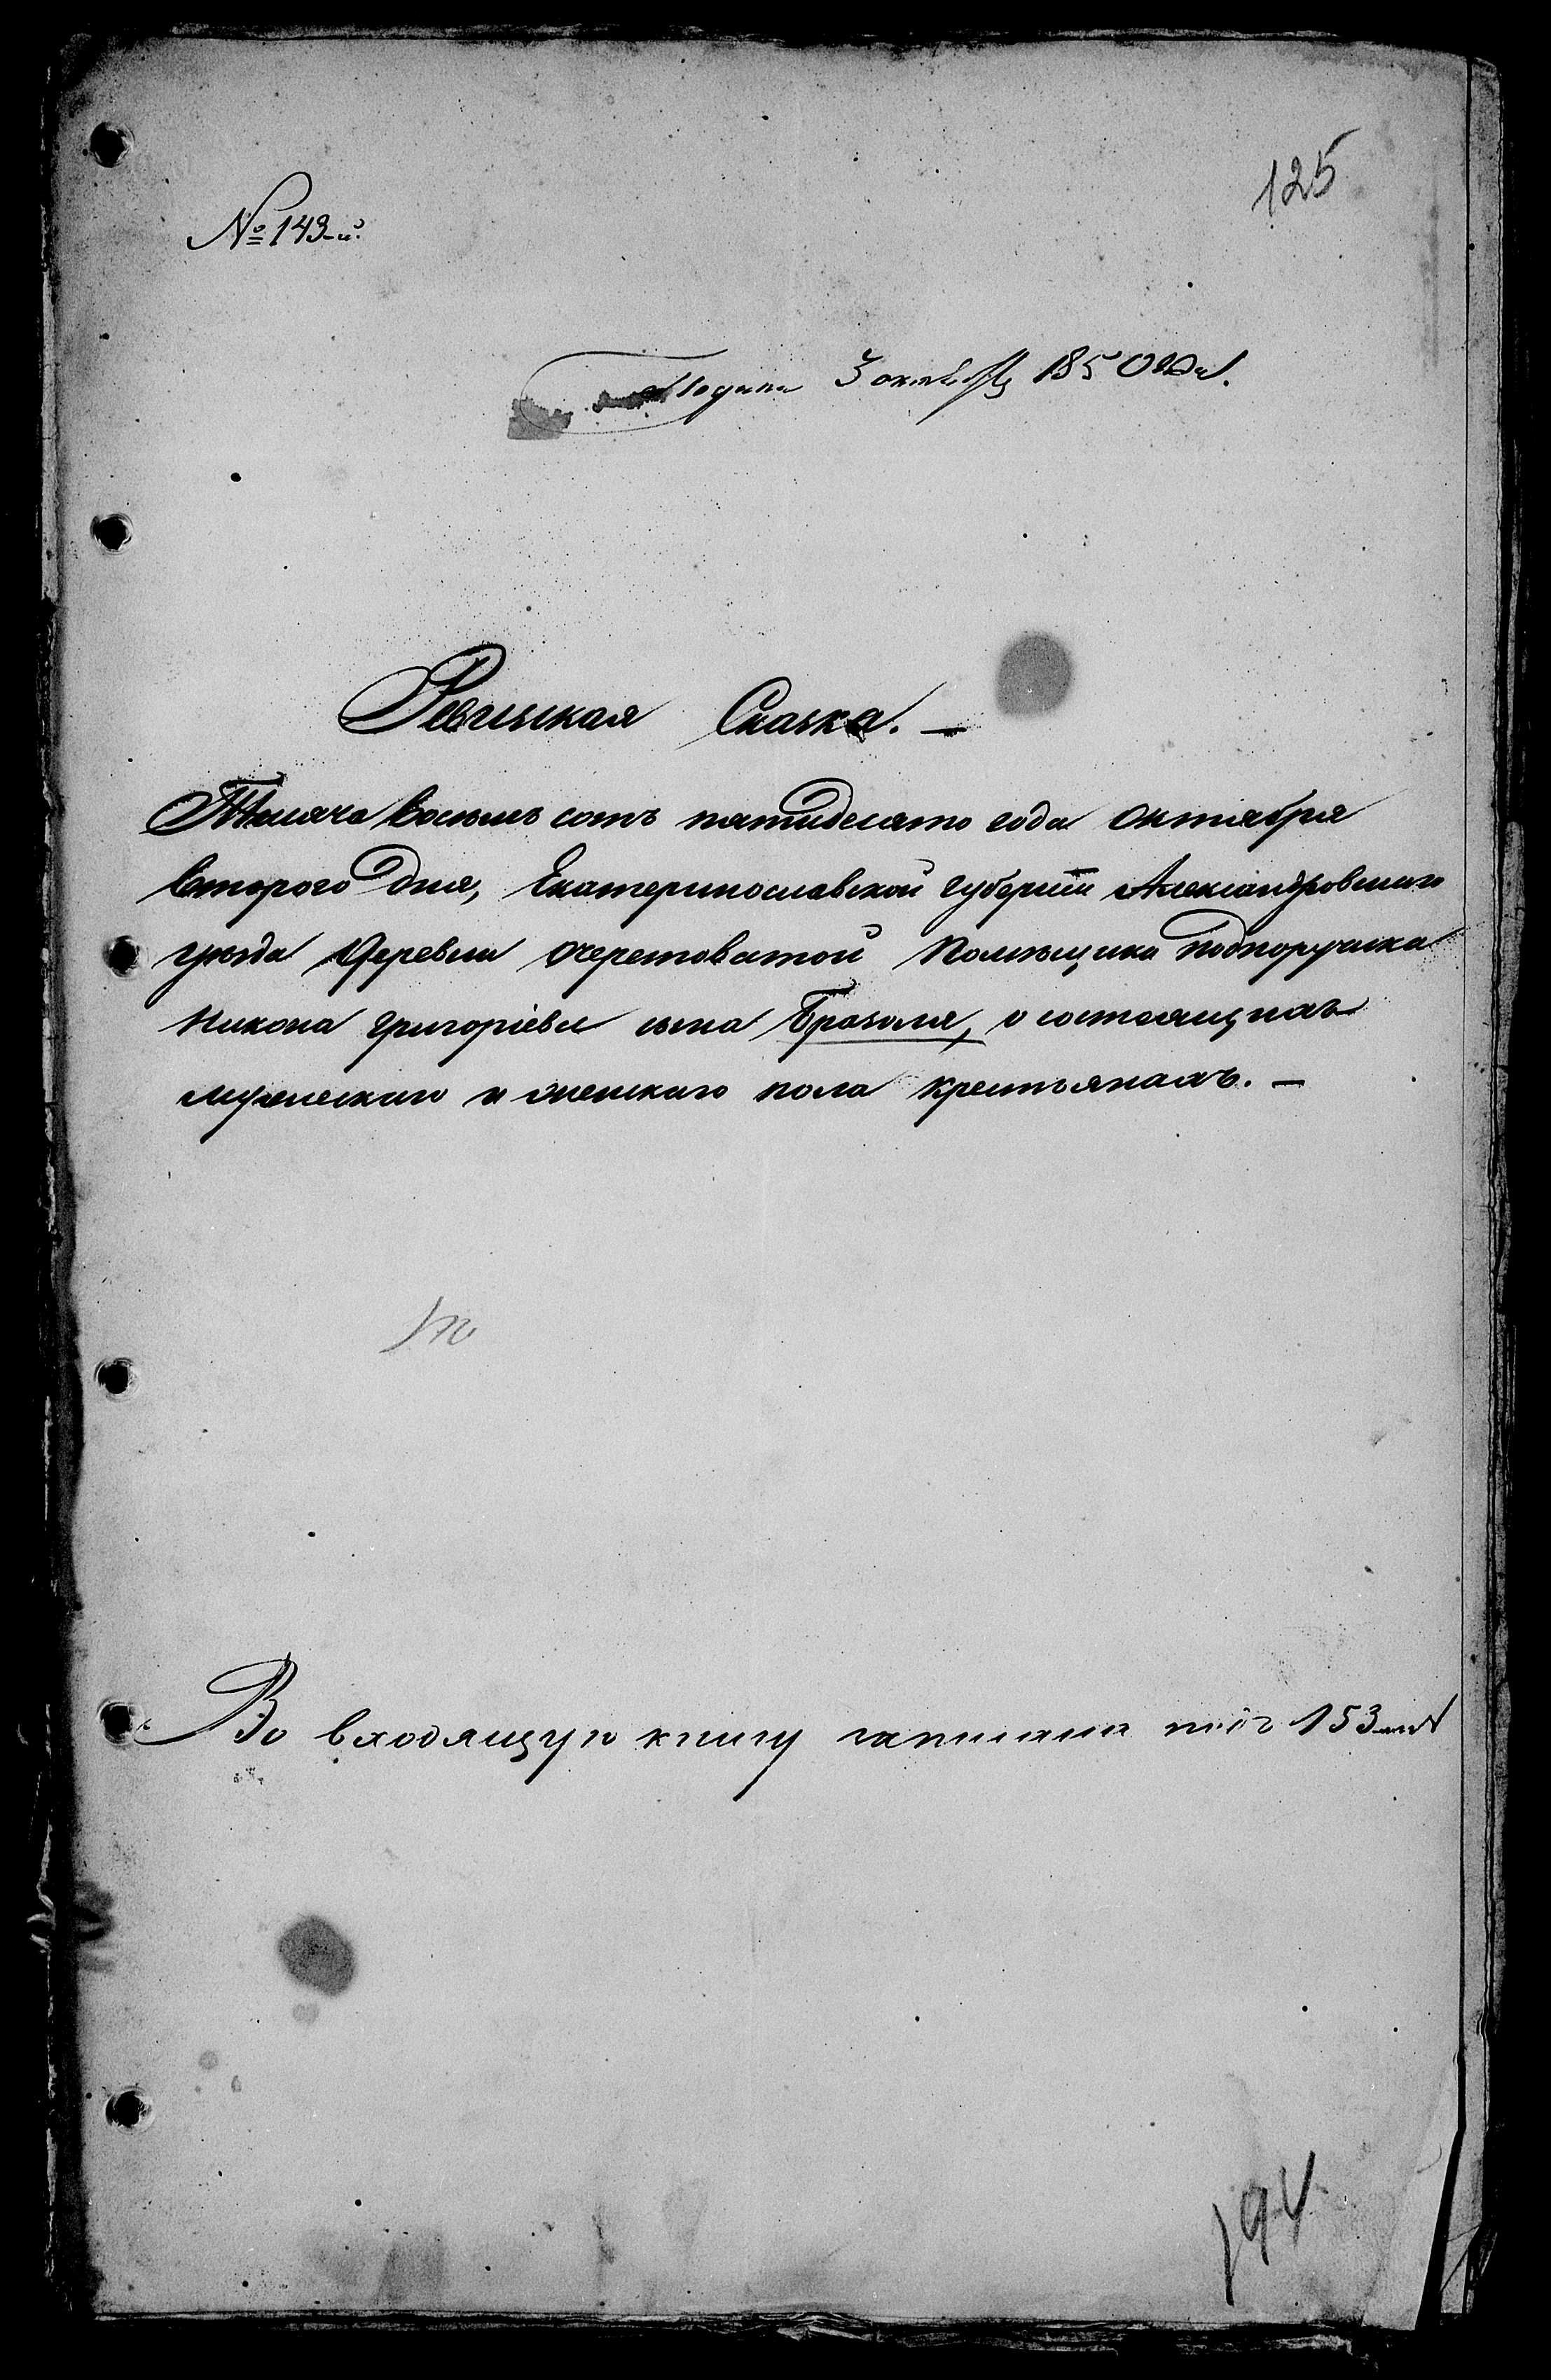 125
№ 143-й.
Подана 3 октября 1850 года.
Ревизская Сказка. —
Тысяча восемь сотъ пятидесято года октября
второго дня, Екатеринославской губернiи Александровскаго
уезда Деревни Очеретоватой Помѣщика подпоручика
Никона Григорiева сына Бразоля, о состоящихъ
мужескаго и женскаго пола крестьянахъ. —
Во входящую книгу записана под 153
194